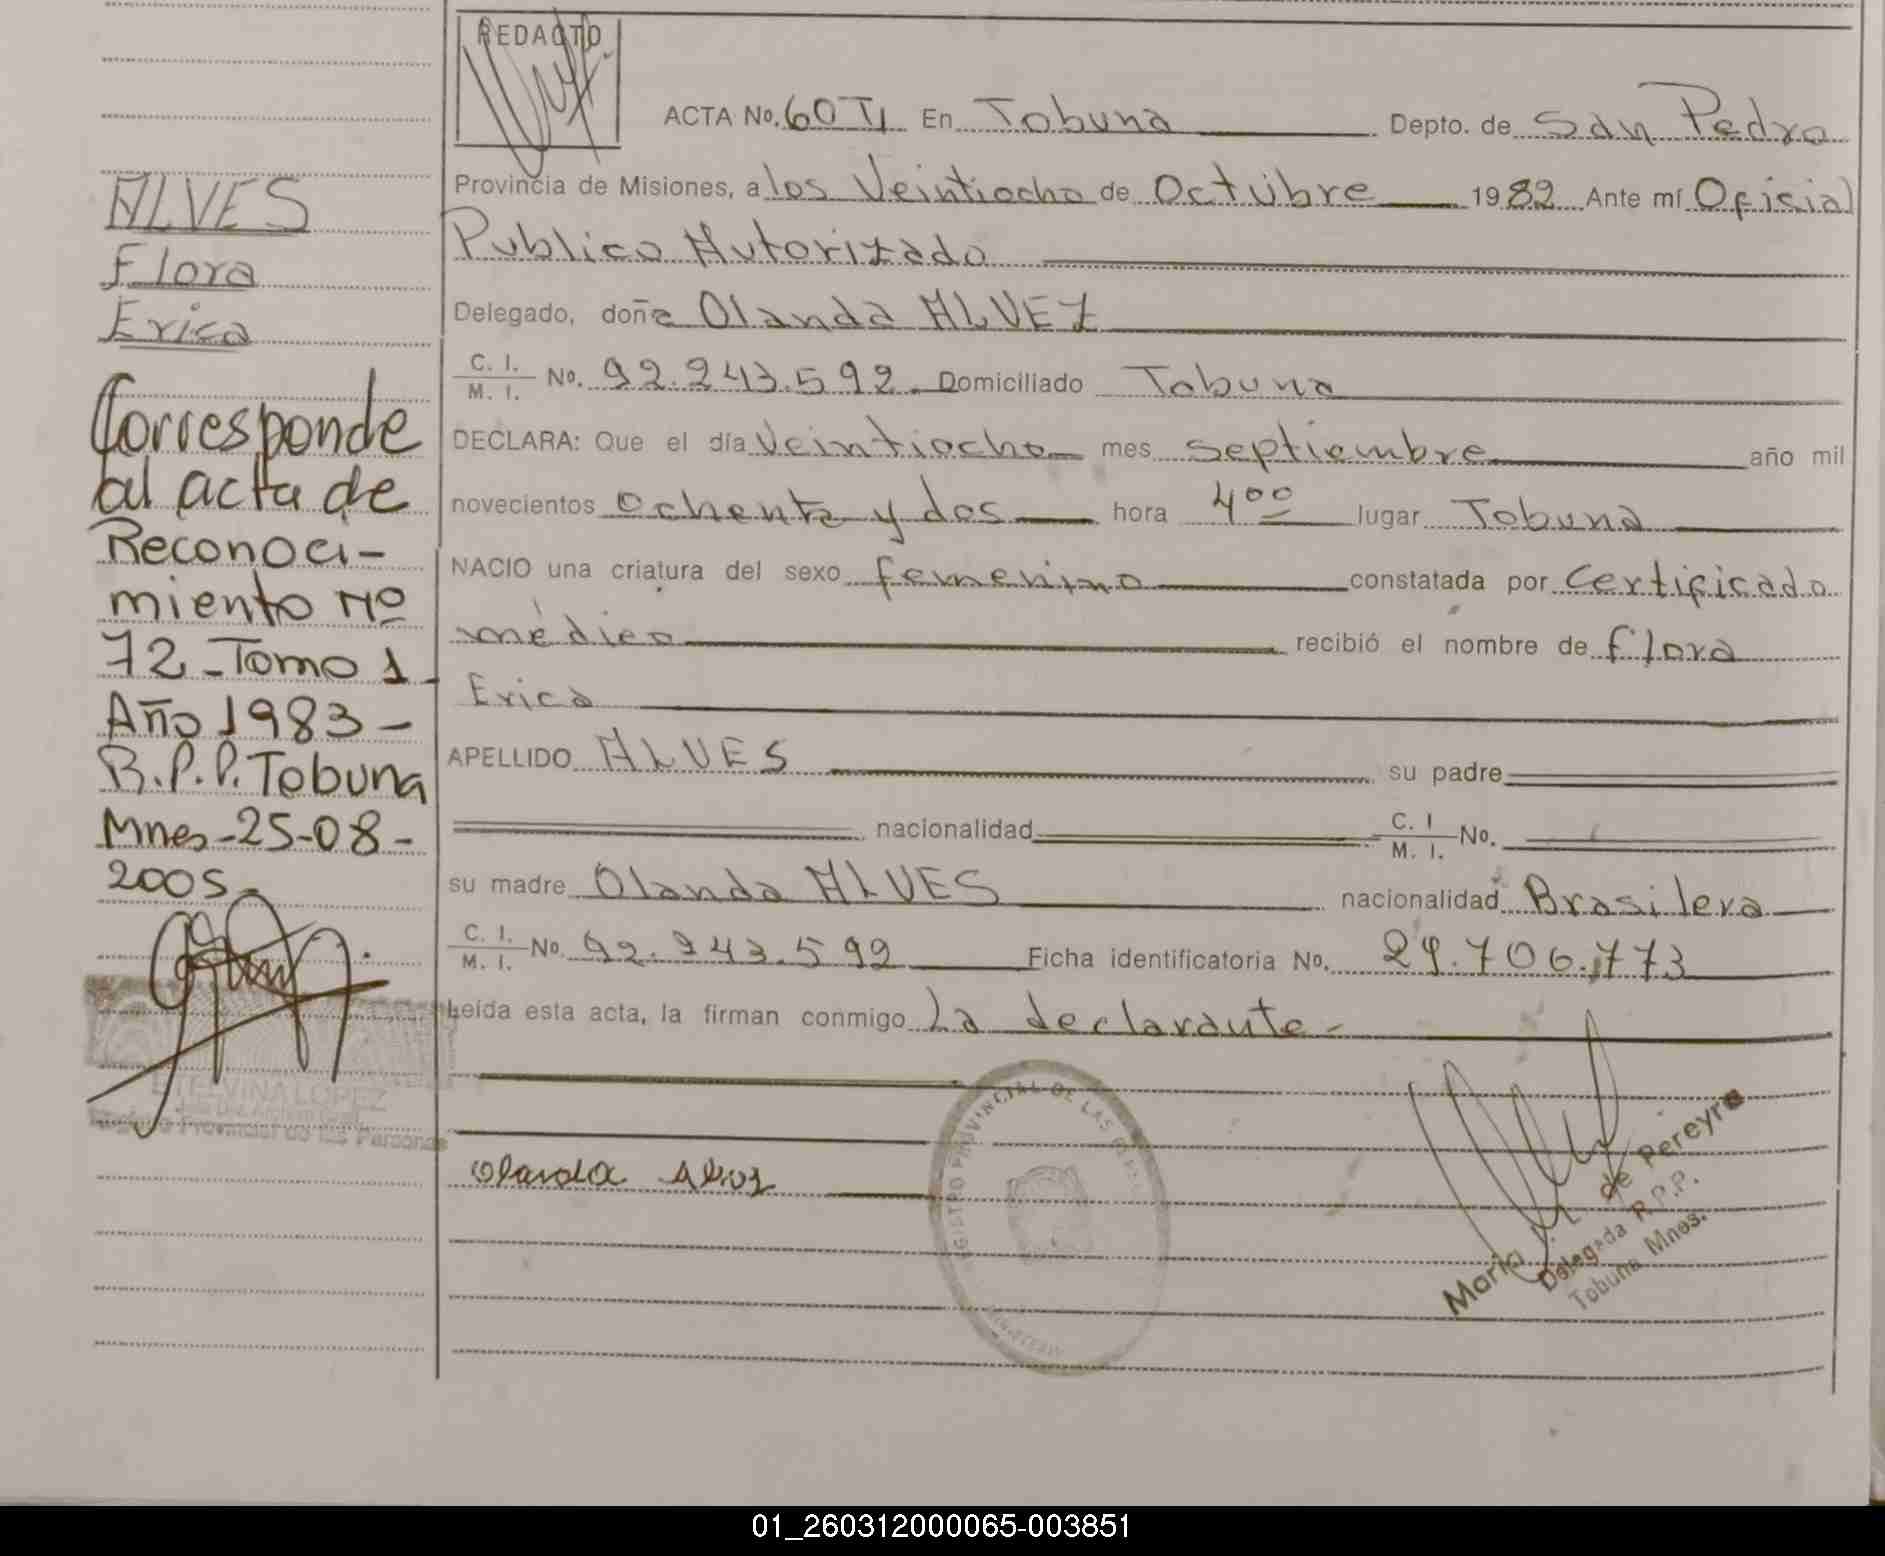 REDACTO
ACTA No. 60 T1 En Tobuna Depto. de San Pedro
Provincia de Misiones, a los Veintiocho de Octubre 1982 Ante mí Oficial
Publico Autorizado
Delegado, doña Olanda ALVEZ
C. I. M. I. No. 92.243.592 Domiciliado Tobuna
DECLARA: Que el día Veintiocho mes septiembre año mil
novecientos ochenta y dos hora 4 00 lugar Tobuna
NACIO una criatura del sexo femenino constatada por certificado
médico recibió el nombre de flora
Erica
APELLIDO ALVES su padre
nacionalidad C. I M. I. No.
su madre Olanda ALVES nacionalidad Brasilera
C. I. M. I. No. 92.243.592 Ficha identificatoria No. 29.706.773
Leída esta acta, la firman conmigo La declarante -
Olanda
REGISTRO PROVINCIAL DE LAS PERSONAS
Maria de Pereyra
Delegada R.P.P.
Tobuna Mnes.
ALVES
Flora
Erica
Corresponde
al acta de
Reconoci-
miento Nº
72 - Tomo 1
Año 1983 -
R.P.P. Tobuna
Mnes - 25-08 -
2005
ETELVINA LOPEZ
Registro Provincial de las Personas
01_260312000065-003851